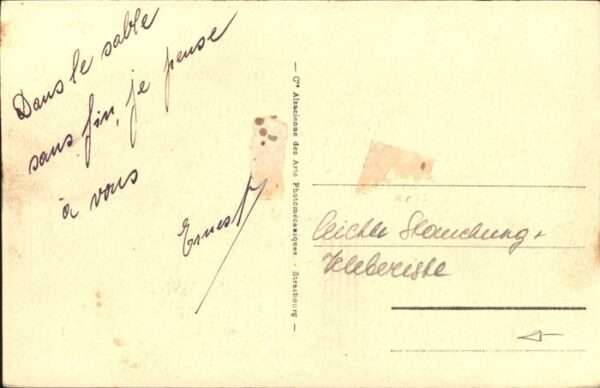 Dans le sable
sans fin, je pense
à vous
Ernest
— Cie Alsacienne des Arts Photomécaniques - Strasbourg —
leichte Stauchung +
Klebereste